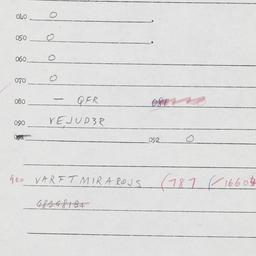 040 O
050 O
060 O
070 O
080 — QFR
090 VEJUD3R
092 O
900 VARFTMIRABOJS (787